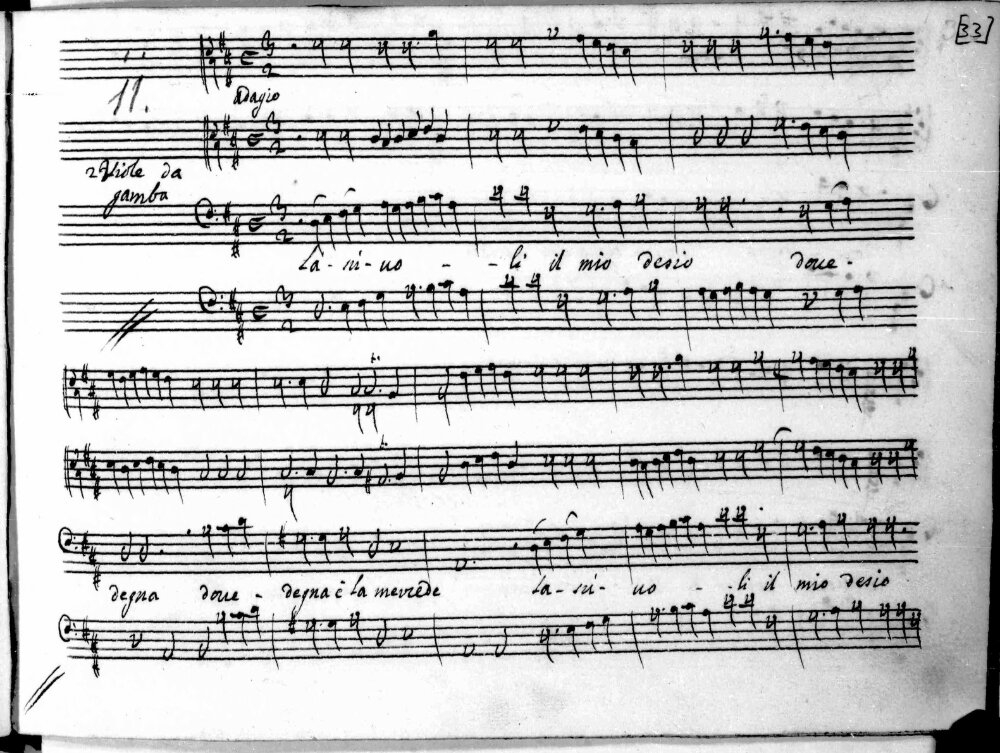 [33]
1.
11.
3
2
Adagio
3
2
2 Viole da
gamba
3
2
La-sci-vo - - li il mio desio dove-
3
2
t.
t.
degna dove - degna è la mercede la-sci- vo - - li il mio desio